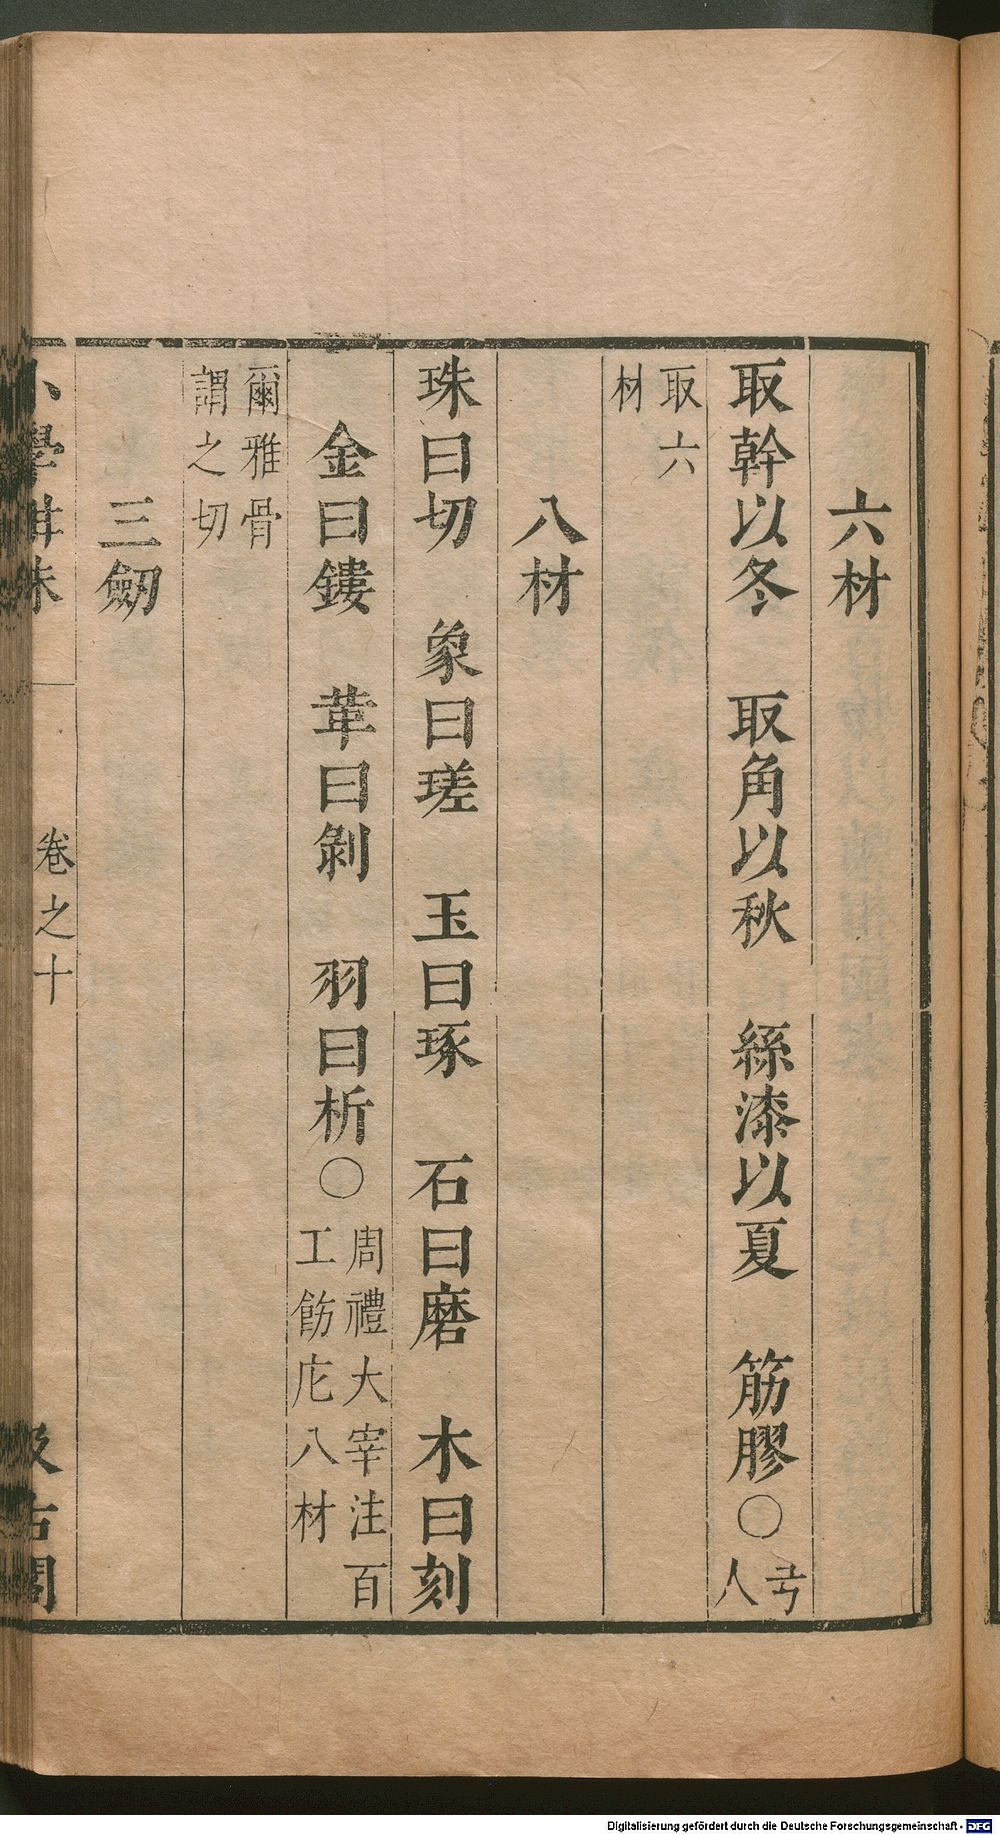 六材
取幹以冬　取角以秋　絲漆以夏　筋膠〇弓人
取六材
八材
珠曰切　象曰瑳　玉曰琢　石曰磨　木曰刻
金曰鏤　革曰剝　羽曰析〇周禮大宰注百工飭庀八材
爾雅骨謂之切
三劒
小學紺珠
卷之十
汲古閣
Digitalisierung gefördert durch die Deutsche Forschungsgemeinschaft - DFG